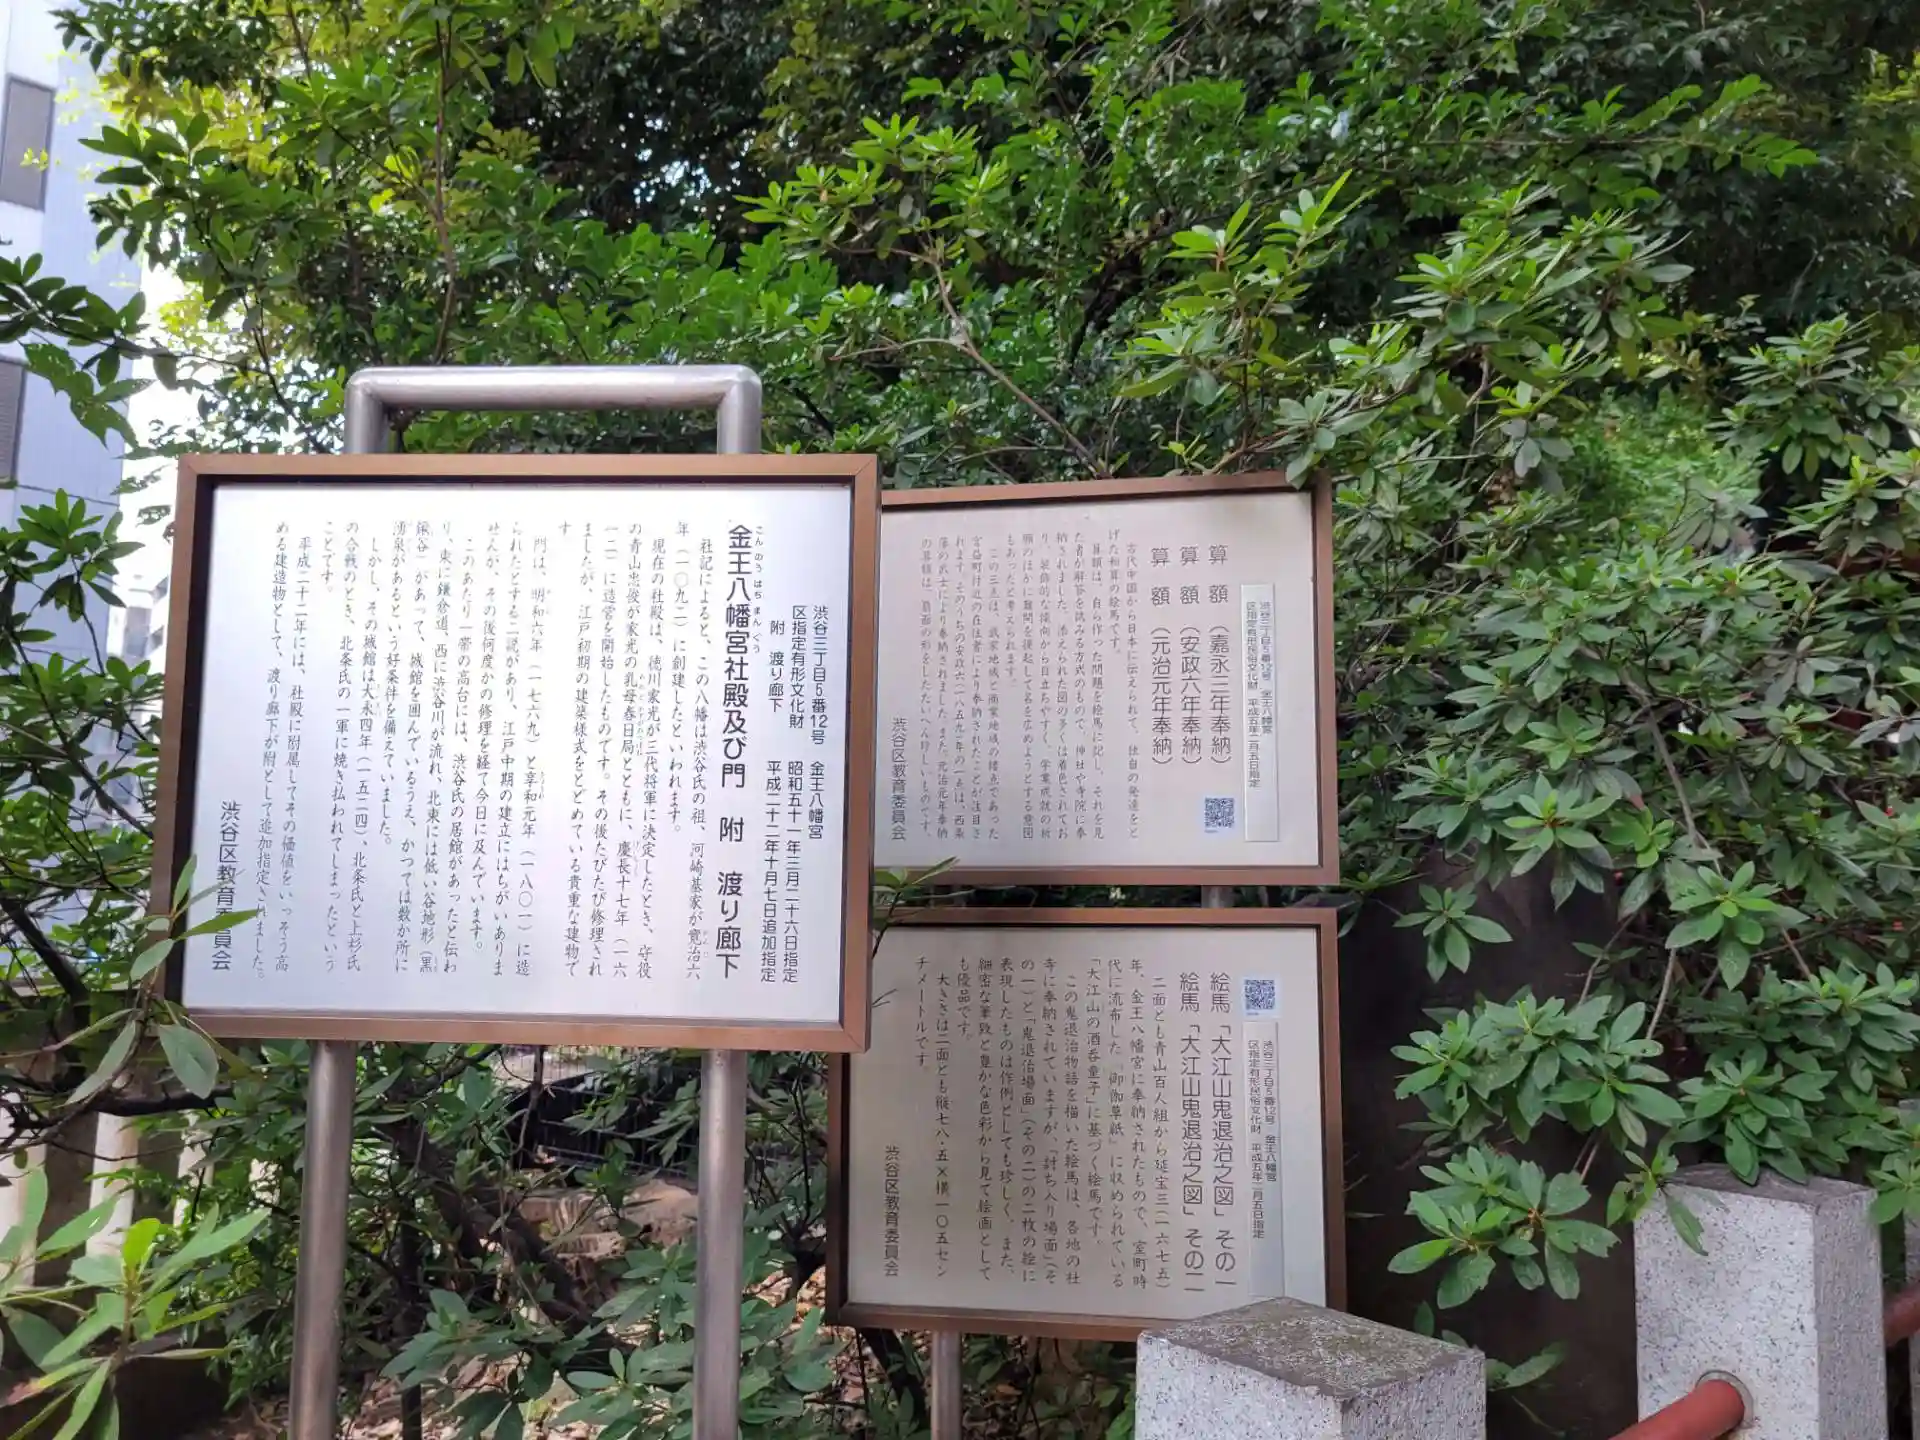 渋谷三丁目5番12号　金王八幡宮
区指定有形文化財　昭和五十一年三月二十六日指定
附　渡り廊下　平成二十二年十月七日追加指定
こんのうはちまんぐう
金王八幡宮社殿及び門　附　渡り廊下
社記によると、この八幡は渋谷氏の祖、河崎基家が寛治六
年（一〇九二）に創建したといわれます。
現在の社殿は、徳川家光が三代将軍に決定したとき、守役
の青山忠俊が家光の乳母春日局とともに、慶長十七年（一六
一二）に造営を開始したものです。その後たびたび修理され
ましたが、江戸初期の建築様式をとどめている貴重な建物で
す。
門は、明和六年（一七六九）と享和元年（一八〇一）に造
られたとする二説があり、江戸中期の建立にはちがいありま
せんが、その後何度かの修理を経て今日に及んでいます。
このあたり一帯の高台には、渋谷氏の居館があったと伝わ
り、東に鎌倉道、西に渋谷川が流れ、北東には低い谷地形（黒
鍬谷）があって、城館を囲んでいるうえ、かつては数か所に
湧泉があるという好条件を備えていました。
しかし、その城館は大永四年（一五二四）、北条氏と上杉氏
の合戦のとき、北条氏の一軍に焼き払われてしまったという
ことです。
平成二十二年には、社殿に附属してその価値をいっそう高
める建造物として、渡り廊下が附として追加指定されました。
渋谷区教育委員会
渋谷三丁目5番12号　金王八幡宮
区指定有形民俗文化財　平成五年二月五日指定
算　額　（嘉永三年奉納）
算　額　（安政六年奉納）
算　額　（元治元年奉納）
古代中国から日本に伝えられて、独自の発達をと
げた和算の絵馬です。
算額は、自ら作った問題を絵馬に記し、それを見
た者が解答を試みる方式のもので、神社や寺院に奉
納されました。添えられた図の多くは着色されてお
り、装飾的な傾向から目立ちやすく、学業成就の祈
願のほかに難問を提起して名を広めようとする意図
もあったと考えられます。
この三点は、武家地域と商業地域の接点であった
宮益町付近の在住者により奉納されたことが注目さ
れます。そのうちの安政六（一八五九）年の一点は、西条
藩の武士により奉納されました。また、元治元年奉納
の算額は、扇面の形をしたたいへん珍しいものです。
渋谷区教育委員会
渋谷三丁目5番12号　金王八幡宮
区指定有形民俗文化財　平成五年二月五日指定
絵馬「大江山鬼退治之図」その一
絵馬「大江山鬼退治之図」その二
二面とも青山百人組から延宝三（一六七五）
年、金王八幡宮に奉納されたもので、室町時
代に流布した『御伽草紙』に収められている
「大江山の酒呑童子」に基づく絵馬です。
この鬼退治物語を描いた絵馬は、各地の社
寺に奉納されていますが、「討ち入り場面」（そ
の一）と「鬼退治場面」（その二）の二枚の絵に
表現したものは作例としても珍しく、また、
細密な筆致と豊かな色彩から見て絵画として
も優品です。
大きさは二面とも縦七八・五×横一〇五セン
チメートルです。
渋谷区教育委員会